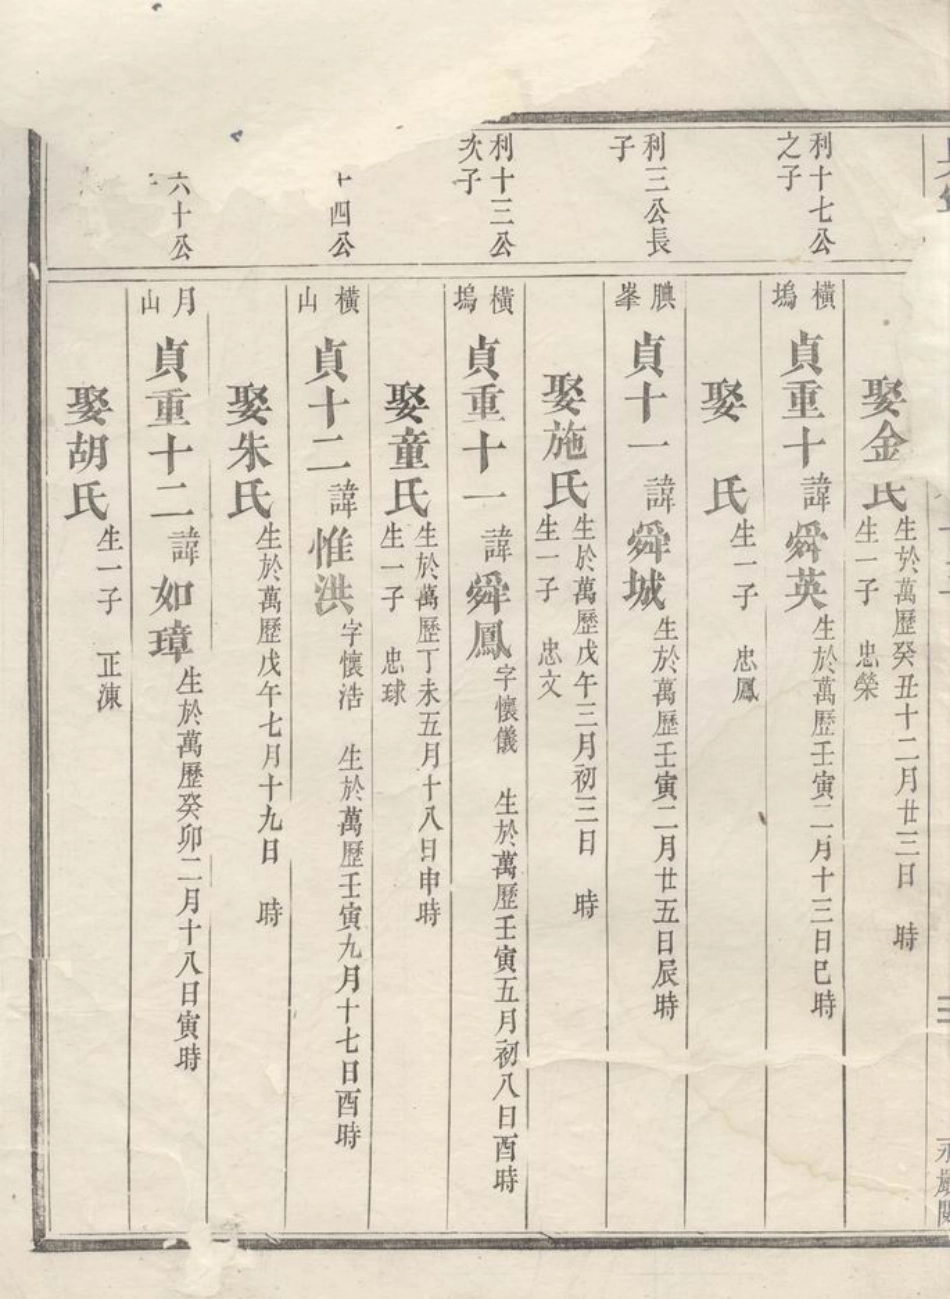 娶金氏
生於萬歷癸丑十二月廿三日 時
生一子 忠榮
利十七公
之子
橫塢
貞重十諱舜英生於萬歷壬寅二月十三日巳時
娶 氏生一子 忠鳳
利三公長
子
腆峯
貞十一諱舜城生於萬歷壬寅二月廿五日辰時
娶施氏
生於萬歷戊午三月初三日 時
生一子 忠文
利十三公
次子
橫塢
貞重十一諱舜鳳字懷儀 生於萬歷壬寅五月初八日酉時
娶童氏
生於萬歷丁未五月十八日申時
生一子 忠球
十四公
橫山
貞十二諱惟洪字懷浩 生於萬歷壬寅九月十七日酉時
娶朱氏生於萬歷戊午七月十九日 時
六十公
月山
貞重十二諱如璋生於萬歷癸卯二月十八日寅時
娶胡氏生一子 正涷